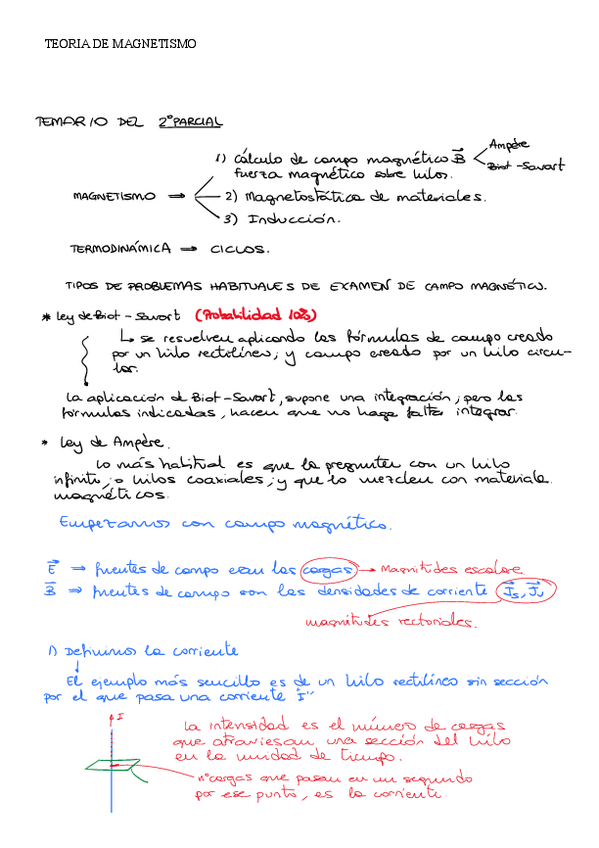 TEORIA DE MAGNETISMO
TEMARIO DEL 2º PARCIAL
MAGNETISMO ⇒ 1) Cálculo de campo magnético B⃗ < Ampère
Biot-Savart
fuerza magnético sobre hilos.
2) Magnetostática de materiales.
3) Inducción.
TERMODINÁMICA ⇒ CICLOS.
TIPOS DE PROBLEMAS HABITUALES DE EXAMEN DE CAMPO MAGNÉTICO.
* Ley de Biot-Savart (Probabilidad 10%)
↳ se resuelven aplicando las fórmulas de campo creado
por un hilo rectilíneo; y campo creado por un hilo circu-
lar.
La aplicación de Biot-Savart, supone una integración; pero las
fórmulas indicadas, hacen que no haga falta integrar.
* Ley de Ampère.
Lo más habitual es que la pregunten con un hilo
infinito; o hilos coaxiales; y que lo mezclen con materiale
magnéticos.
Empezamos con campo magnético.
E⃗ ⇒ fuentes de campo eran las cargas → Magnitudes escalare.
B⃗ ⇒ fuentes de campo son las densidades de corriente J⃗s, J⃗v
magnitudes vectoriales.
1) Definimos la corriente
↓
El ejemplo más sencillo es de un hilo rectilíneo sin sección
por el que pasa una corriente "I"
I
La intensidad es el número de cargas
que atraviesan una sección del hilo
en la unidad de tiempo.
nº cargas que pasan en un segundo
por ese punto, es la corriente.